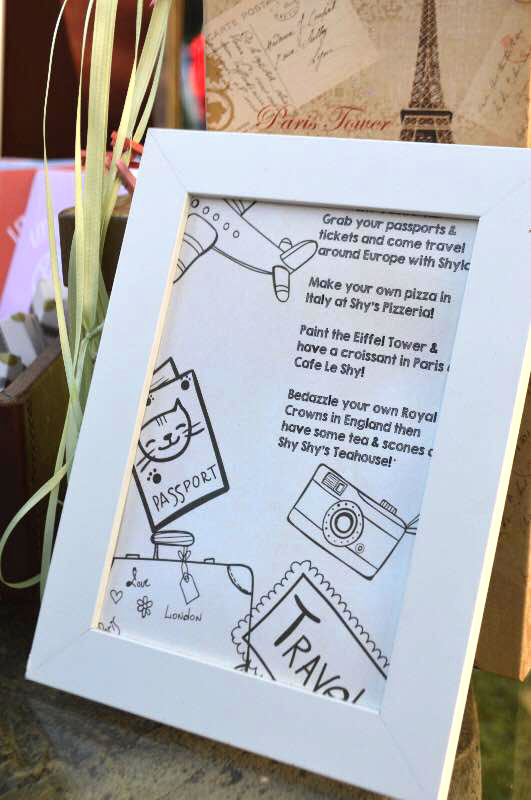 CARTE POSTALE
Paris Tower
Grab your passports &
tickets and come travel
around Europe with
Make your own pizza in
Italy at Shy's Pizzeria!
Paint the Eiffel Tower &
have a croissant in Paris
Cafe Le Shy!
Bedazzle your own Royal
Crowns in England then
have some tea & scones
Shy Shy's Teahouse!
PASSPORT
Love
LONDON
TRAVEL